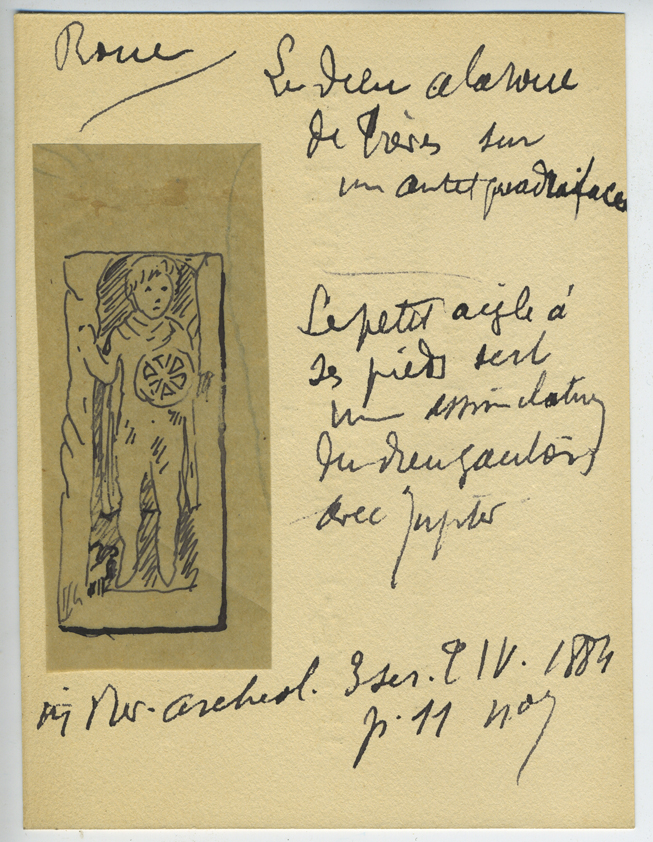 Roue
Le dieu à la roue
de Trèves sur
un autel quadrifaces
Le petit aigle à
ses pieds serl
une assimilation
du dieu gaulois
avec Jupiter
in Rev. archéol. 3 ser. T IV. 1884
p. 11